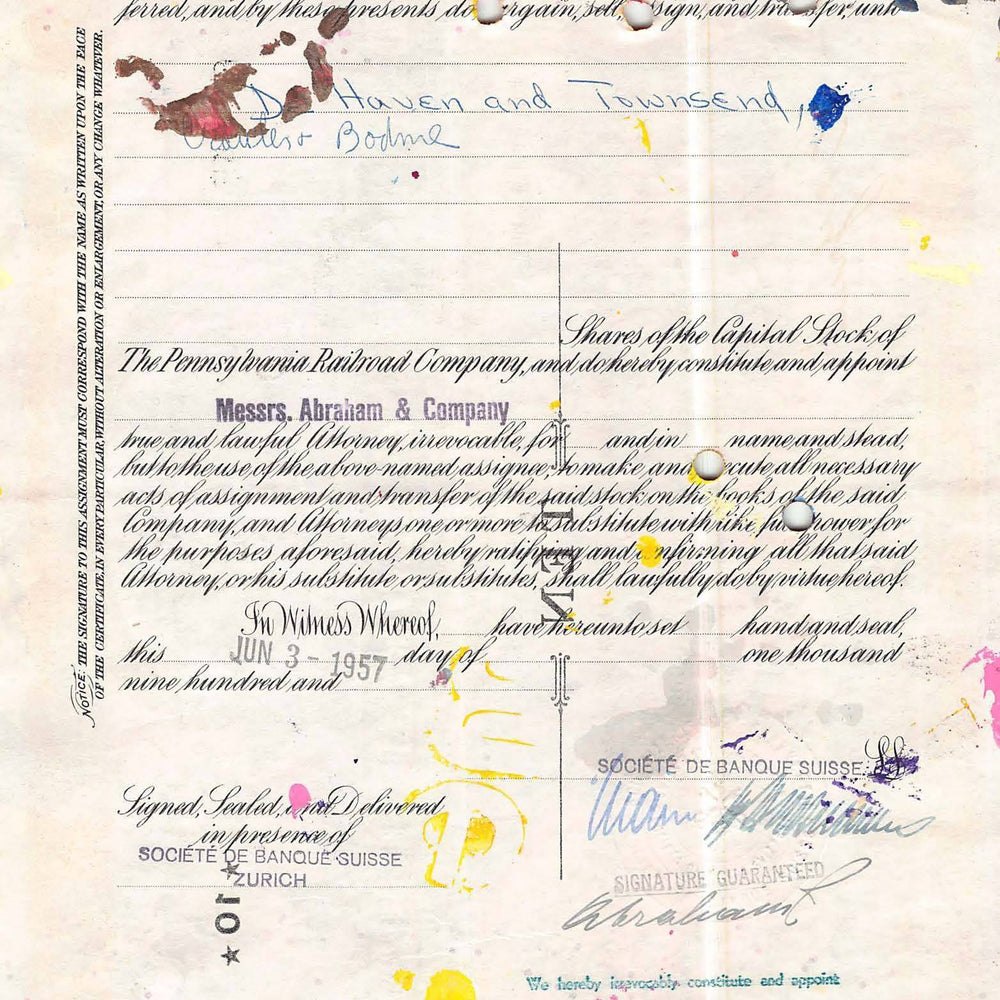 ferred, and by these presents do bargain, sell, assign, and transfer, unto
De Haven and Townsend,
Bodme
Shares of the Capital Stock of
The Pennsylvania Railroad Company, and do hereby constitute and appoint
Messrs. Abraham & Company
true and lawful Attorney, irrevocable, for and in name and stead,
but to the use of the above-named assignee, to make and execute all necessary
acts of assignment and transfer of the said stock on the books of the said
Company, and Attorneys one or more to substitute with like full power for
the purposes aforesaid, hereby ratifying and confirming all that said
Attorney, or his substitute or substitutes, shall lawfully do by virtue hereof.
In Witness Whereof, have hereunto set hand and seal,
this JUN 3 - 1957 day of one thousand
nine hundred and
SOCIÉTÉ DE BANQUE SUISSE
Signed, Sealed, and Delivered
in presence of
SOCIÉTÉ DE BANQUE SUISSE
ZURICH
SIGNATURE GUARANTEED
Abraham
We hereby irrevocably constitute and appoint
NOTICE: THE SIGNATURE TO THIS ASSIGNMENT MUST CORRESPOND WITH THE NAME AS WRITTEN UPON THE FACE
OF THE CERTIFICATE, IN EVERY PARTICULAR, WITHOUT ALTERATION OR ENLARGEMENT, OR ANY CHANGE WHATEVER.
TEN
★ 10 ★